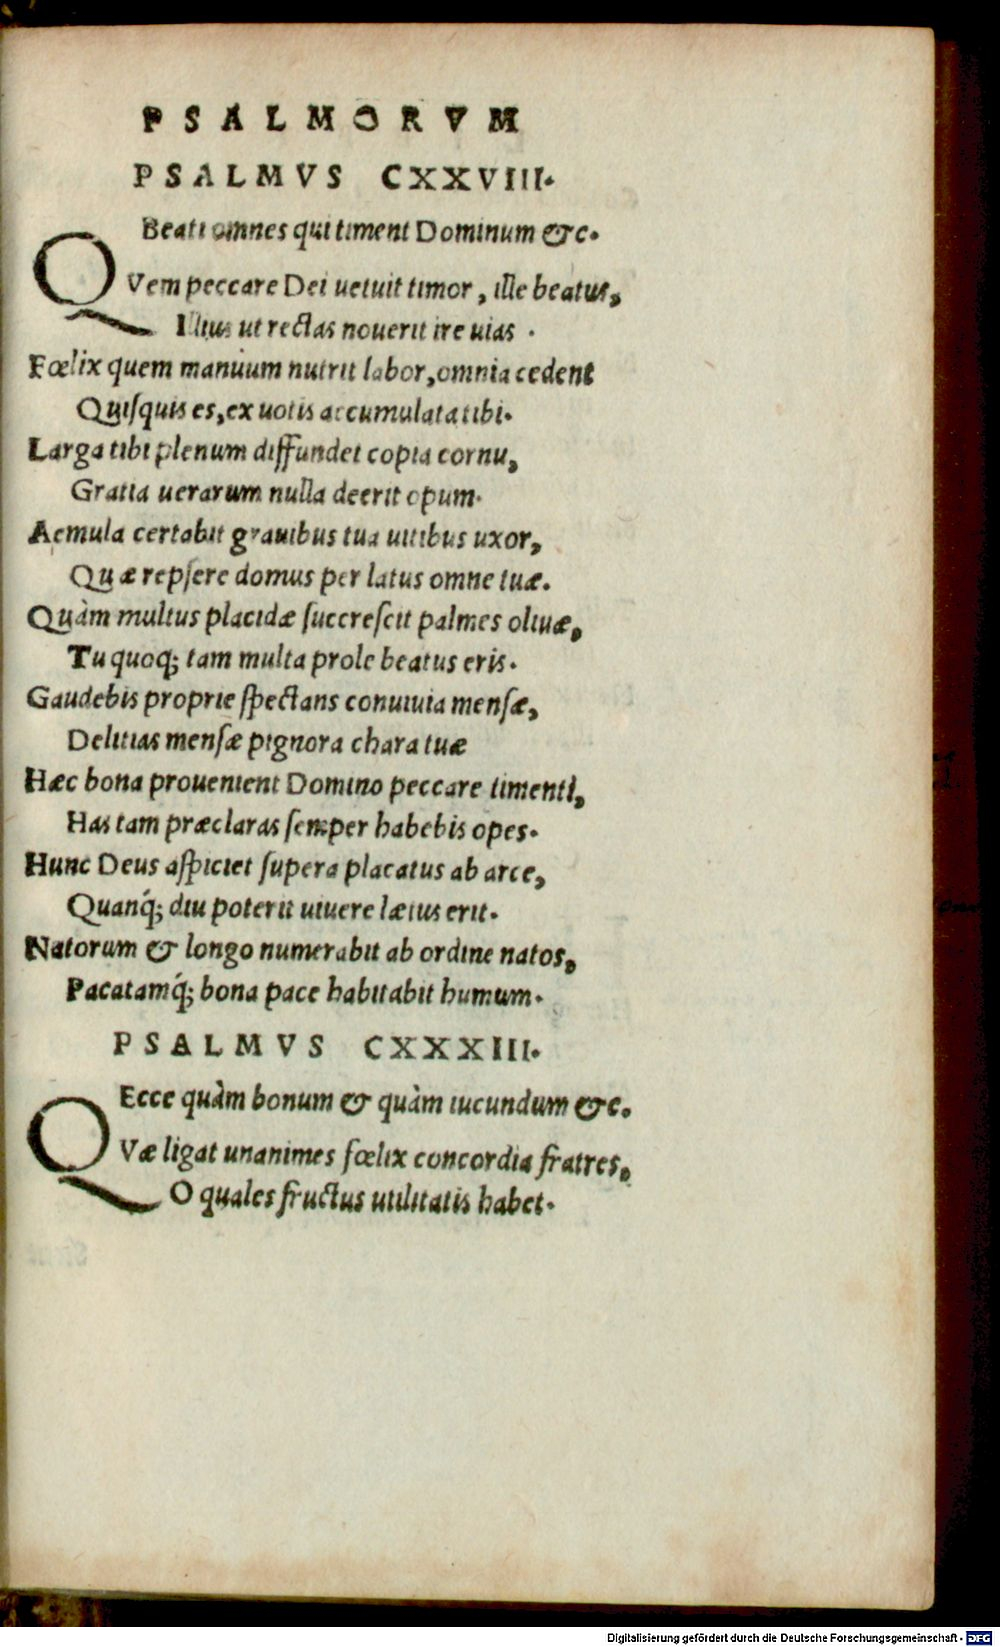 PSALMORVM
PSALMVS CXXVIII.
Beati omnes qui timent Dominum &c.
QVem peccare Dei uetuit timor, ille beatus,
Illius ut rectas nouerit ire uias .
Fœlix quem manuum nutrit labor, omnia cedent
Quisquis es, ex uotis accumulata tibi.
Larga tibi plenum diffundet copia cornu,
Gratia uerarum nulla deerit opum.
Aemula certabit grauibus tua uitibus uxor,
Quæ repsere domus per latus omne tuæ.
Quàm multus placidæ succrescit palmes oliuæ,
Tu quoq; tam multa prole beatus eris.
Gaudebis proprie spectans conuiuia mensæ,
Delitias mensæ pignora chara tuæ
Hæc bona prouenient Domino peccare timenti,
Has tam præclaras semper habebis opes.
Hunc Deus aspiciet supera placatus ab arce,
Quanq́; diu poterit uiuere lætus erit.
Natorum & longo numerabit ab ordine natos,
Pacatamq́; bona pace habitabit humum.
PSALMVS CXXXIII.
Ecce quàm bonum & quàm iucundum &c.
QVæ ligat unanimes fœlix concordia fratres,
O quales fructus utilitatis habet.
Digitalisierung gefördert durch die Deutsche Forschungsgemeinschaft - DFG